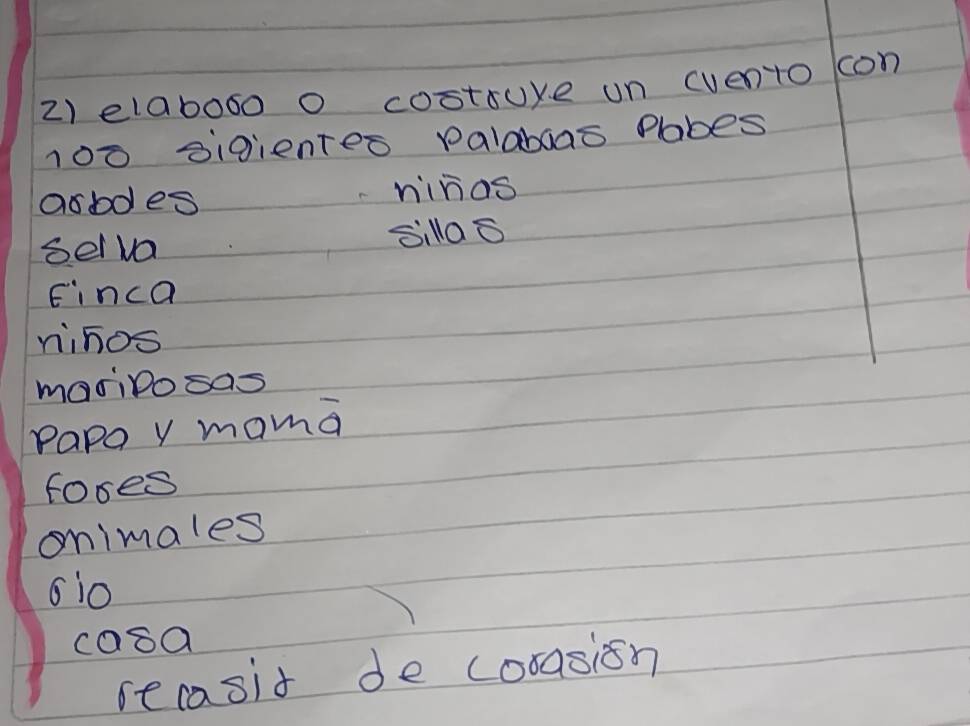 2) elaboro o costruye un cuento con
100 sigientes palabras
arboles niñas
selva sillas
Finca
niños
mariposas
papa y mamá
fores
animales
rio
casa
de corasión